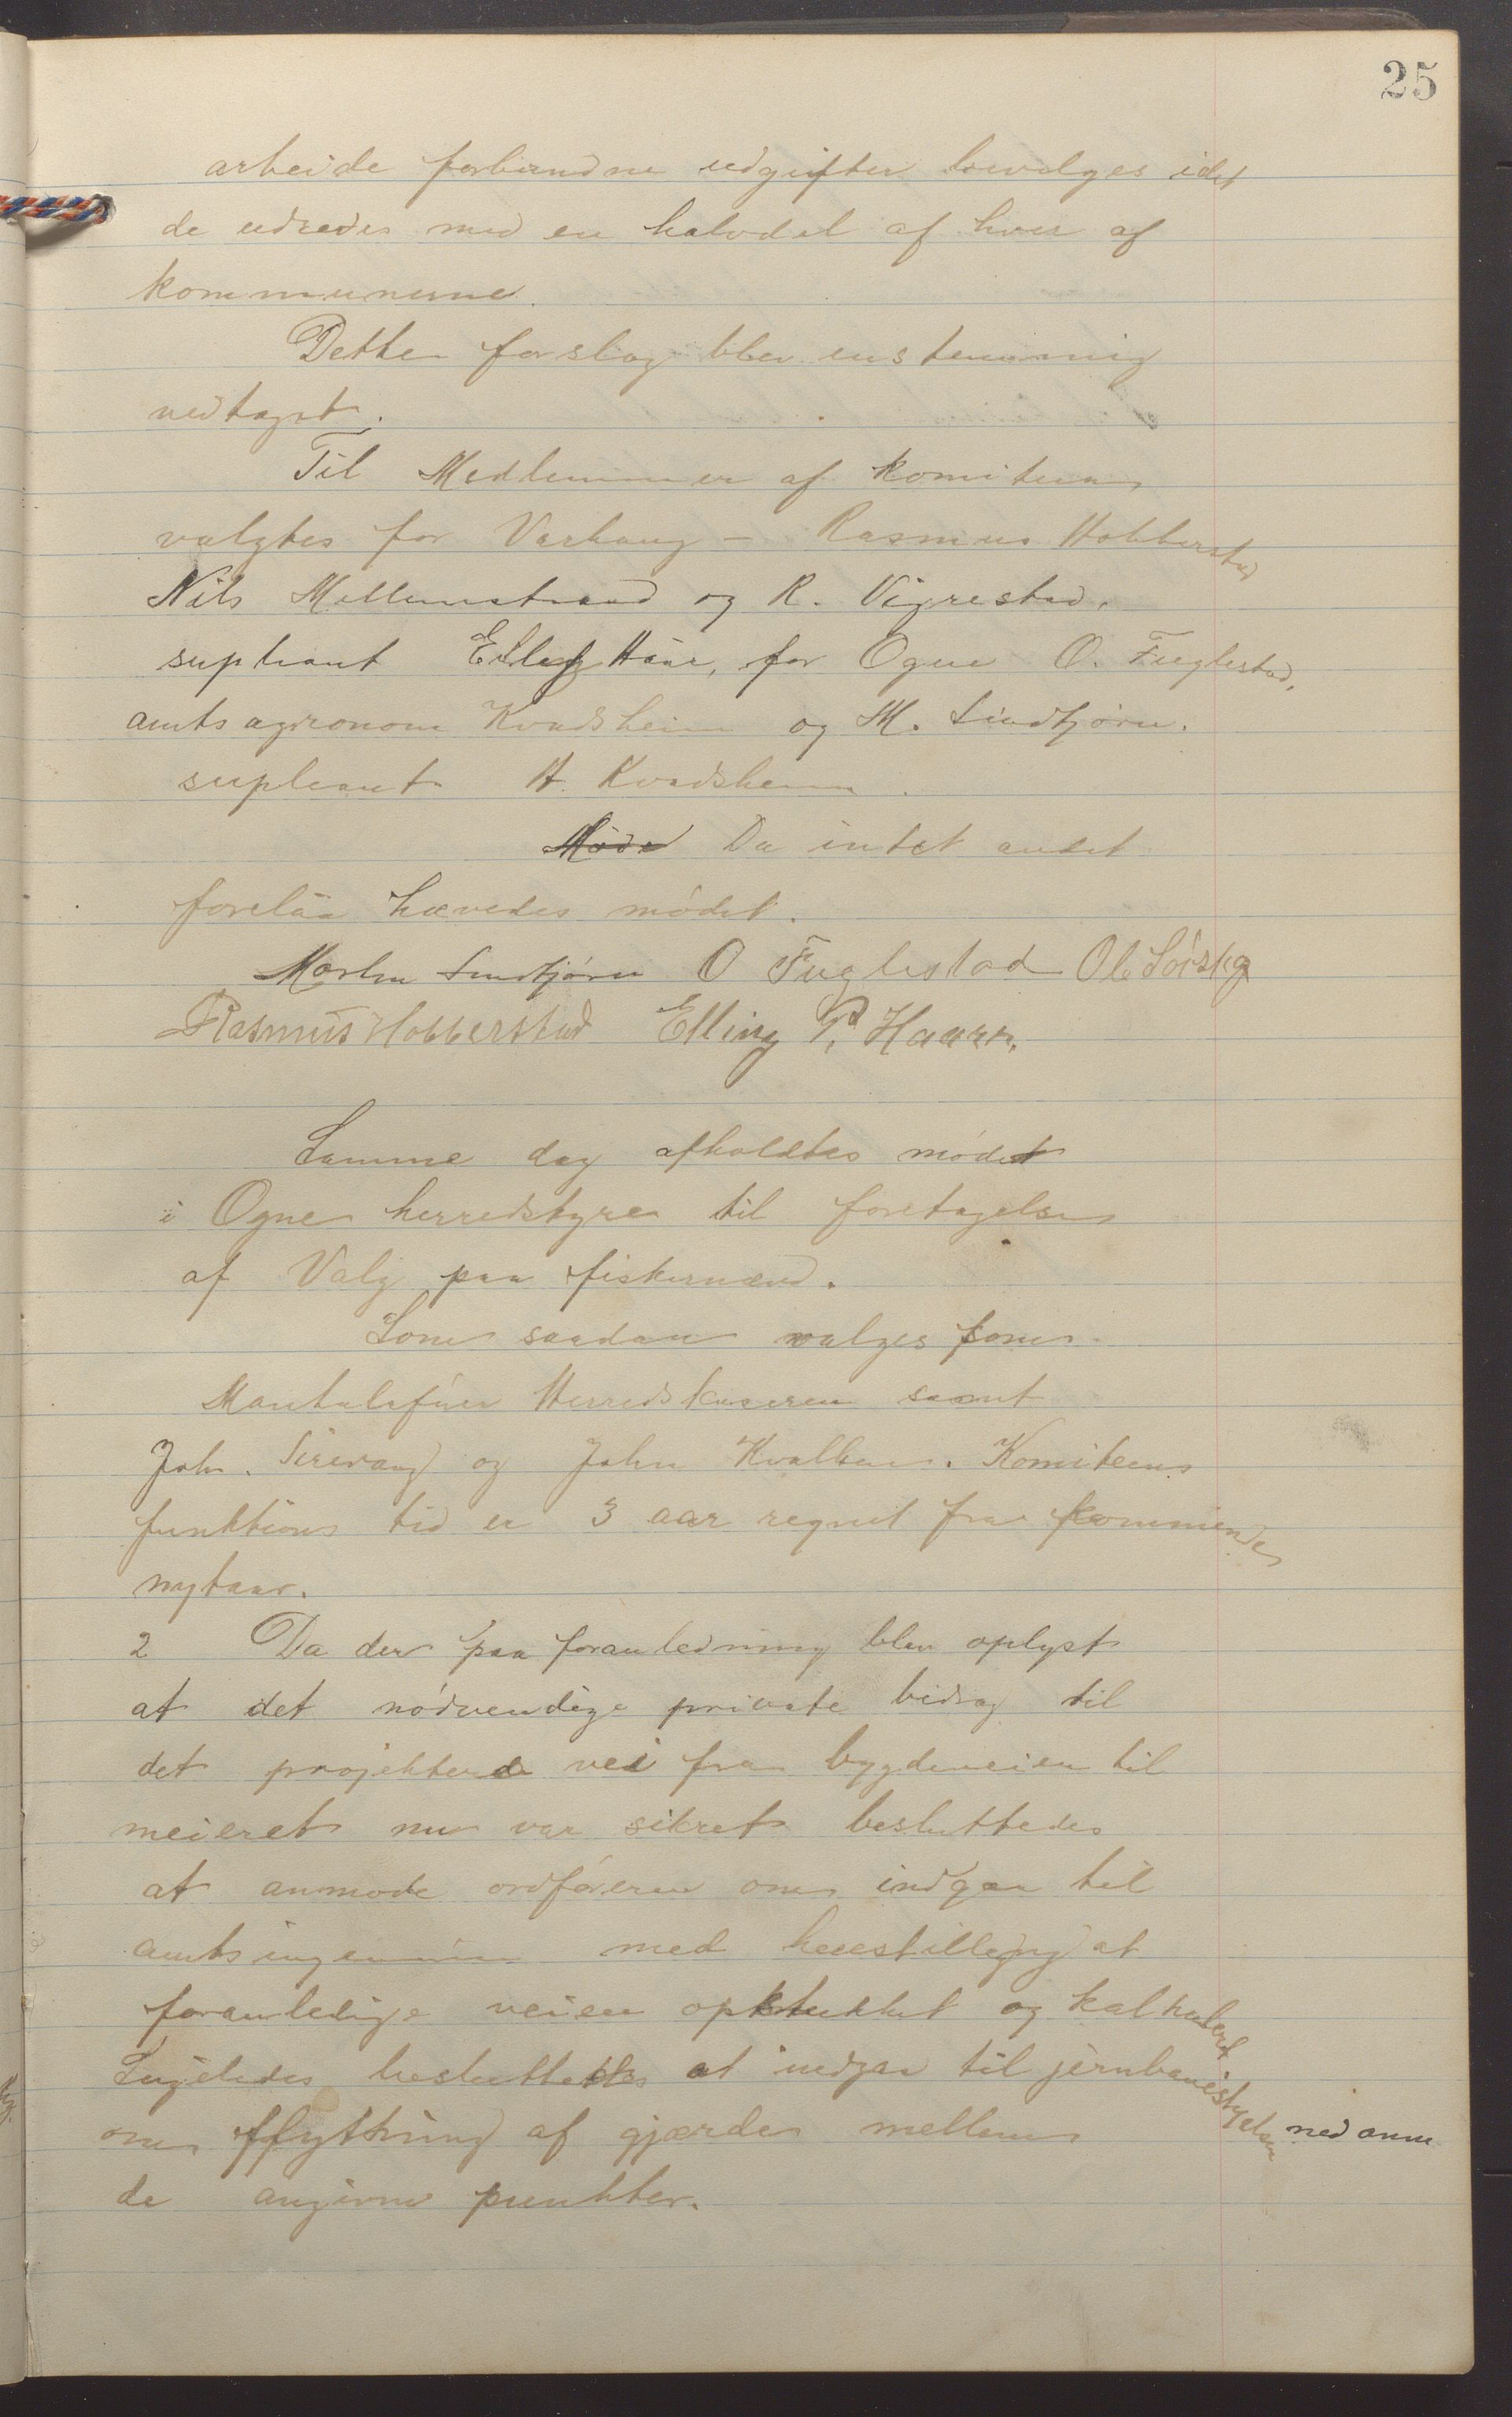 25
arbeide forbundne udgifter bevilges idet
de udredes med en halvdel af hver af
kommunerne.
Dette forslag blev enstemmig
vedtaget.
Til Medlemmer af komiteen
valgtes for Varhaug – Rasmus Hobberstad
Nils Mellemstrand og R. Vigrestad,
supleant Elling Håar, for Ogne O. Fuglestad,
amtsagronom Kvadsheim og M. Lindtjørn.
supleant H. Kvadsheim.
Møde Da intet andet
forelaa hævedes mødet.
Morten Lindtjørn O Fuglestad Ole
Rasmus Hobberstad Elling P. Haarr.
Samme dag afholdtes mødet
i Ogne herredstyre til foretagelse
af Valg paa fiskernævd.
Som saadan valges som
Mantalsfører Herredskaseren samt
John. Sirevaag og John Kvalbein. Komiteens
funktions tid er 3 aar regnet fra kommende
nytaar.
2 Da der paa foranledning blev oplyst
at det nødvendige private bidrag til
det projekterede vei fra bygdeveien til
meieret nu var sikret besluttedes
at anmode ordføreren om indgaa til
amtsingeniøren med henstilling at
foranledige veien opstukket og kalkulert
Ligeledes besluttedes at indgaa til jernbanestyrelsen med anm
om flytning af gjærder mellem
de angivne punkter.